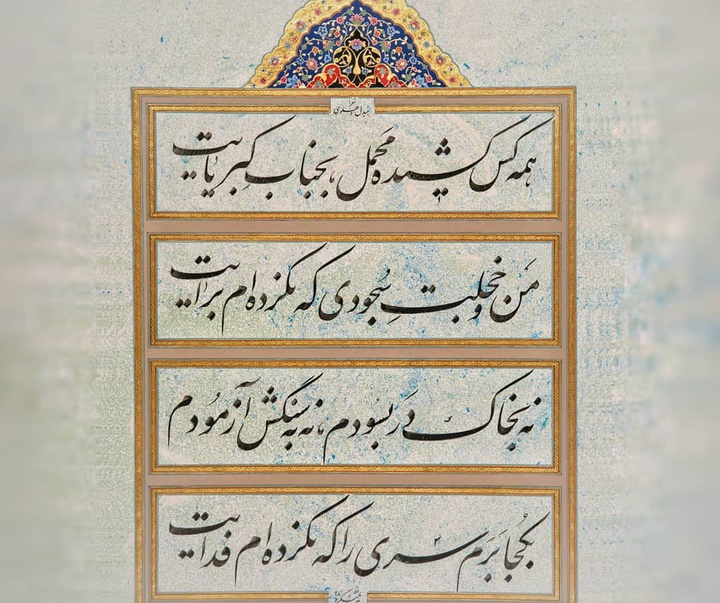 همه کس کشیده مَحمل بجنابِ کِبریایت
مَن و خجلتِ سُجودی که نکرده ام برایت
نه بخاک دَر بسُودم، نه به سَنگش آزمُودم
بکُجا بَرَم سری را که نکرده ام فدایت